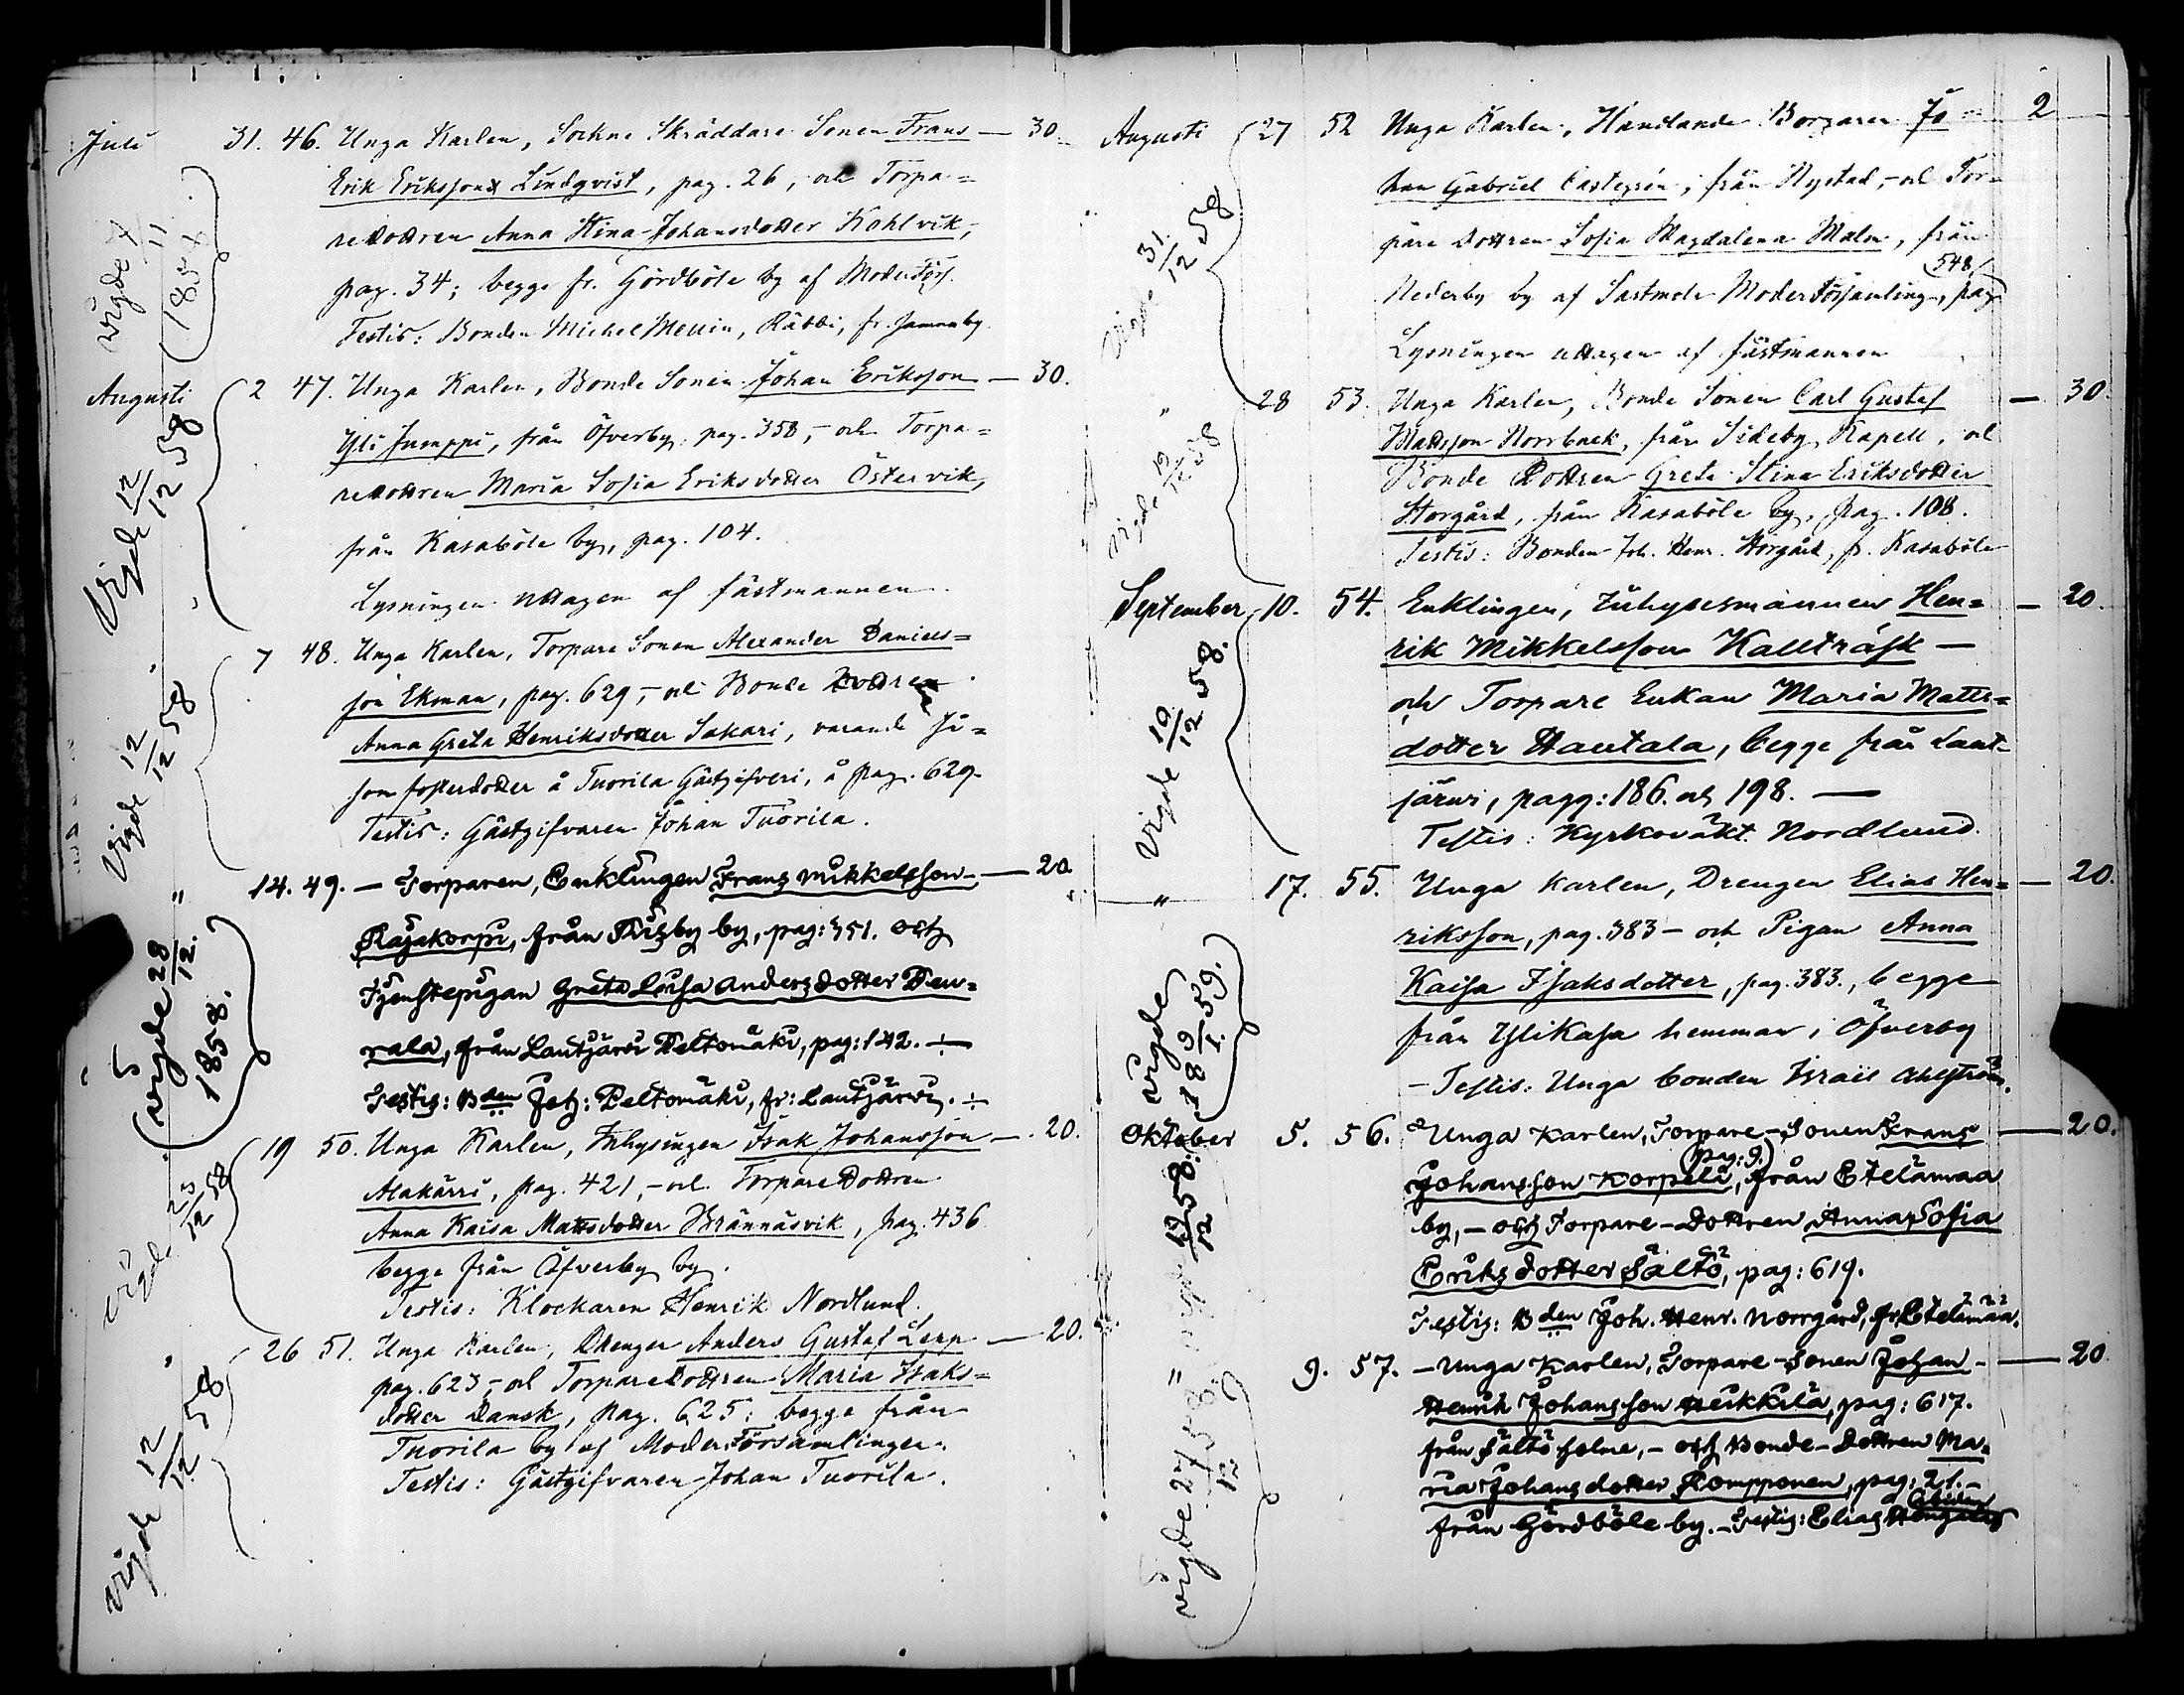 Juli 31. 46. Unga Karlen, Sockne Skräddare Sonen Frans — 30.
Erik Eriksson Lindqvist, pag. 26, och Torpa=
redottren Anna Stina Johansdotter Kohlvik,
pag. 34; begge fr. Gördböle by af ModerFörs.
Testis: Bonden Michel Mellin, Räbbi, fr. samma by.
vigde 7/11 1857
Augusti 2 47. Unga Karlen, Bonde Sonen Johan Eriksson — 30.
Yli Jumppi, från Öfverby, pag. 358, – och Torpa=
redottren Maria Sofia Eriksdotter Östervik,
från Kasaböle by, pag. 104.
Lysningen uttagen af fästmannen.
Vigde 12/12 58
" 7 48. Unga Karlen, Torpare Sonen Alexander Daniels=
son Ekman, pag. 629, – och Bonde Dottren
Anna Greta Henriksdotter Sakari, varande
som fosterdotter å Tuorila Gästgifveri, å pag. 629.
Testis: Gästgifvaren Johan Tuorila.
Vigde 12/12 58
" 14. 49. — Torparen, Enklingen Frans Mikkelsson — 20.
Rajakorpi, från Riisby by, pag: 351. och
Tjenstepigan Greta Lovisa Andersdotter
rala, från Lautjärvi Peltomäki, pag: 142. ÷
Testis: Bden Joh: Peltomäki, fr: Lautjärvi. ÷
vigde 28/12. 1858.
19 50. Unga Karlen, Inhysingen Isak Johansson — 20.
Alakärri, pag. 421, – och TorpareDottren
Anna Kaisa Mattsdotter Brännäsvik, pag. 436
begge från Öfverby by.
Testis: Klockaren Henrik Nordlund.
vigde 25/12 58
" 26 51. Unga Karlen, Drengen Anders Gustaf Lepp — 20.
pag. 623, – och TorpareDottren Maria Isaks=
dotter Dansk, pag. 625; begge från
Tuorila by af ModerFörsamlingen.
Testis: Gästgifvaren Johan Tuorila.
vigde 12/12 58
Augusti 27 52 Unga Karlen, Handlande Borgaren Jo= 2
han Gabriel Castegrén, från Nystad, – och Tor=
pare Dottren Sofia Magdalena Malm, från
Nederby by af Sastmola ModerFörsamling, pag 548.
Lysningen uttagen af fästmannen
Vigde 31/12 58
" 28 53. Unga Karlen, Bonde Sonen Carl Gustaf — 30.
Mattsson Norrback, från Sideby Kapell, och
Bonde Dottren Greta Stina Eriksdotter
Storgård, från Kasaböle by, pag. 108.
Testis: Bonden Joh. Henr. Storgård, fr. Kasaböle
Vigde 19/12 58
September 10. 54. Enklingen, Inhysesmannen Hen= — 20.
rik Mikkelsson Kallträsk —
och Torpare Enkan Maria Matts=
dotter Hautala, begge från Laut=
järvi, pagg: 186. och 198. —
Testis: Kyrkovakt. Nordlund.
Vigde 19/12 58.
" 17. 55. Unga Karlen, Drengen Elias Hen= — 20.
riksson, pag. 383 – och Pigan Anna
Kaisa Isaksdotter, pag. 383., begge
från Ylikasa hemman i Öfverby
– Testis: Unga bonden Israel Ahlström.
vigde 9/1. 1859.
Oktober 5. 56. Unga Karlen, Torpare-Sonen Frans — 20.
Johansson Korpela (pag: 9.), från Etelämaa
by, – och Torpare-Dottren Anna Sofia
Eriksdotter Sältö, pag: 619.
Testis: Bden Joh. Henr. Norrgård, fr. Etelämaa.
vigde 19/12 58.
" 9. 57. – Unga Karlen, Torpare-Sonen Johan — 20
Henrik Johansson Heikkilä, pag: 617.
från Sältö holme, – och Bonde-Dottren Ma=
ria Johansdotter Rompponen, pag: 21. –
från Gördböle by. – Testis: Elias
vigde 27/12 58.